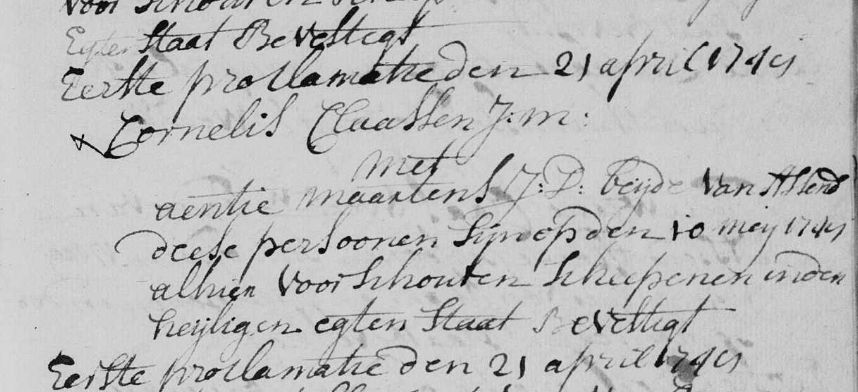 voor Schout en Schep
Egten Staat Bevestigt
Eerste proclamatie den 21 april 1745
x Cornelis Claassen J: m:
met
aentie maartens J: D: beijde van Assend
deese persoonen Sijn op den 10 meij 1745
alhier voor Schout en Scheepenen in den
heijligen egten Staat Bevestigt
Eerste proclamatie den 21 april 1745